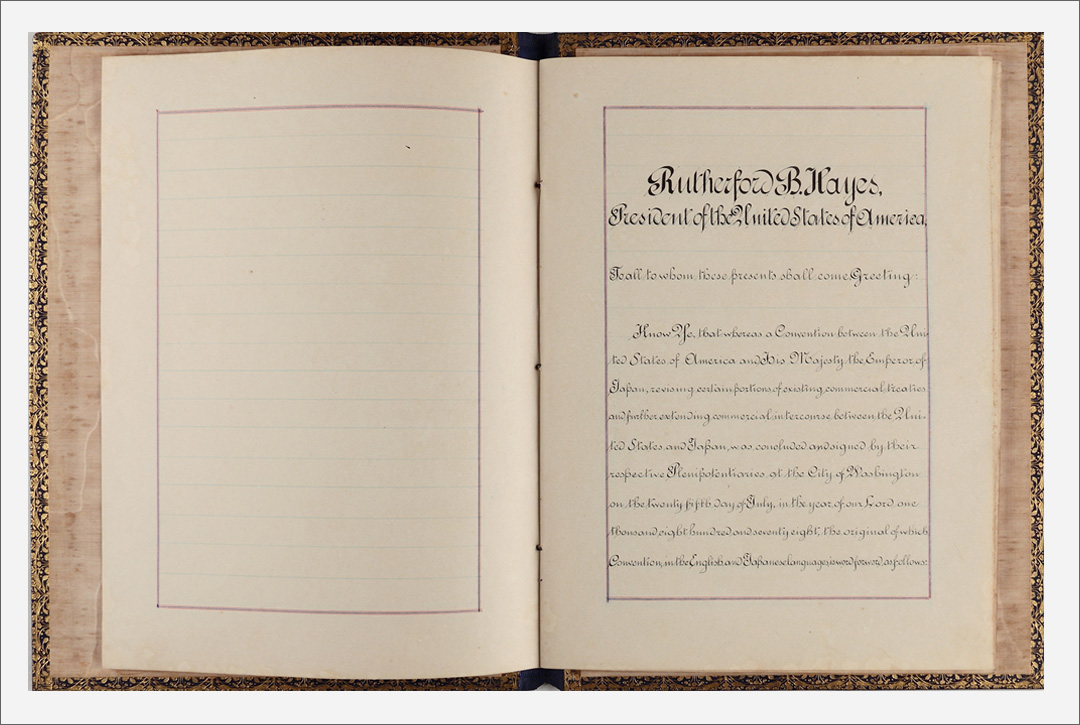 Rutherford B. Hayes,
President of the United States of America,
To all to whom these presents shall come Greeting:
Know Ye, that whereas a Convention between the Uni
ted States of America and His Majesty the Emperor of
Japan, revising certain portions of existing commercial treaties
and further extending commercial intercourse between the Uni-
ted States and Japan, was concluded and signed by their
respective Plenipotentiaries at the City of Washington
on the twenty fifth day of July, in the year of our Lord one
thousand eight hundred and seventy eight, the original of which
Convention, in the English and Japanese languages is word for word, as follows: